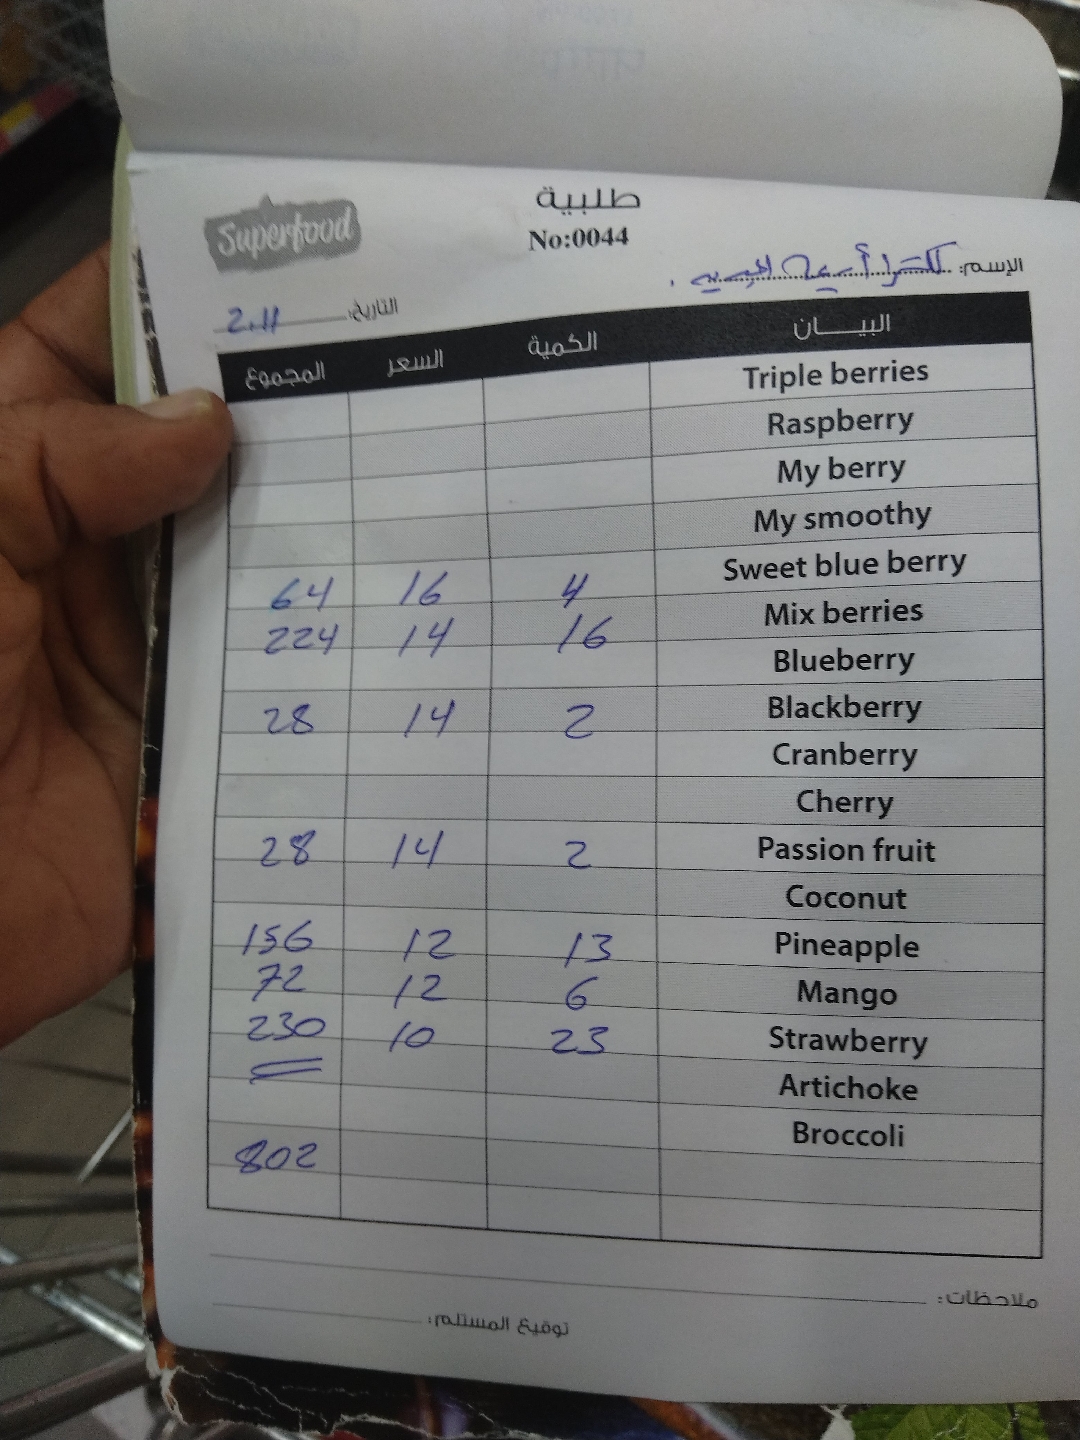 Superfood
طلبية
No:0044
الإسم:
التاريخ: 2.11
البيــــان الكمية السعر المجموع
Triple berries
Raspberry
My berry
My smoothy
Sweet blue berry 4 16 64
Mix berries 16 14 224
Blueberry
Blackberry 2 14 28
Cranberry
Cherry
Passion fruit 2 14 28
Coconut
Pineapple 13 12 156
Mango 6 12 72
Strawberry 23 10 230
Artichoke
Broccoli
802
ملاحظات:
توقيع المستلم: